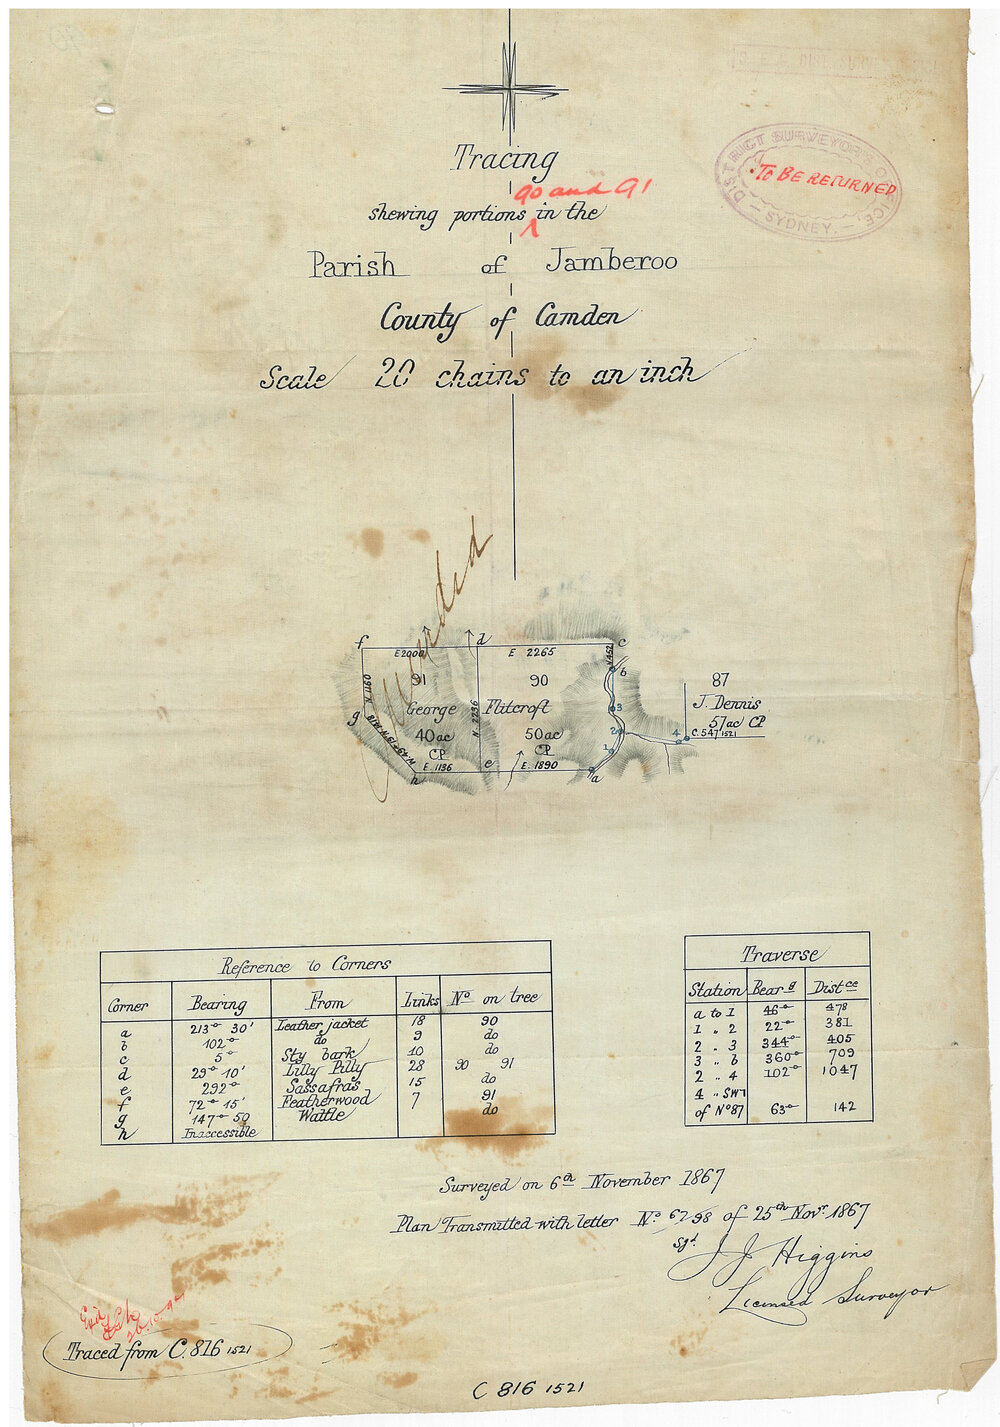 Tracing
90 and 91
shewing portions ^ in the
Parish of Jamberoo
County of Camden
Scale 20 chains to an inch
DISTRICT SURVEYOR'S OFFICE,
TO BE RETURNED
SYDNEY.
f d c
E 2000 E 2265 N 452
b
91 90 87
N 1160 3 J. Dennis
g George Flitcroft 57ac CP
N 2236 2 4 C.547 1521
40ac 50ac
CP CP 1
E. 1136 e E. 1890
h a
Reference to Corners
Corner Bearing From Links No on tree
a 213° 30' Leather jacket 18 90
b 102° do 9 do
c 5° Sty bark 10 do
d 29° 10' Lilly Pilly 28 90 91
e 292° Sassafras 15 do
f 72° 15' Featherwood 7 91
g 147° 50 Wattle do
h Inaccessible
Traverse
Station Bearg Distce
a to 1 46° 478
1 " 2 22° 381
2 " 3 344° 405
3 " b 360° 709
2 " 4 102° 1047
4 " SW
of No 87 63° 142
Surveyed on 6th November 1867
Plan Transmitted with letter No 67-98 of 25th Novr 1867
Sgd. J J Higgins
Licensed Surveyor
Traced from C.816 1521
C 816 1521